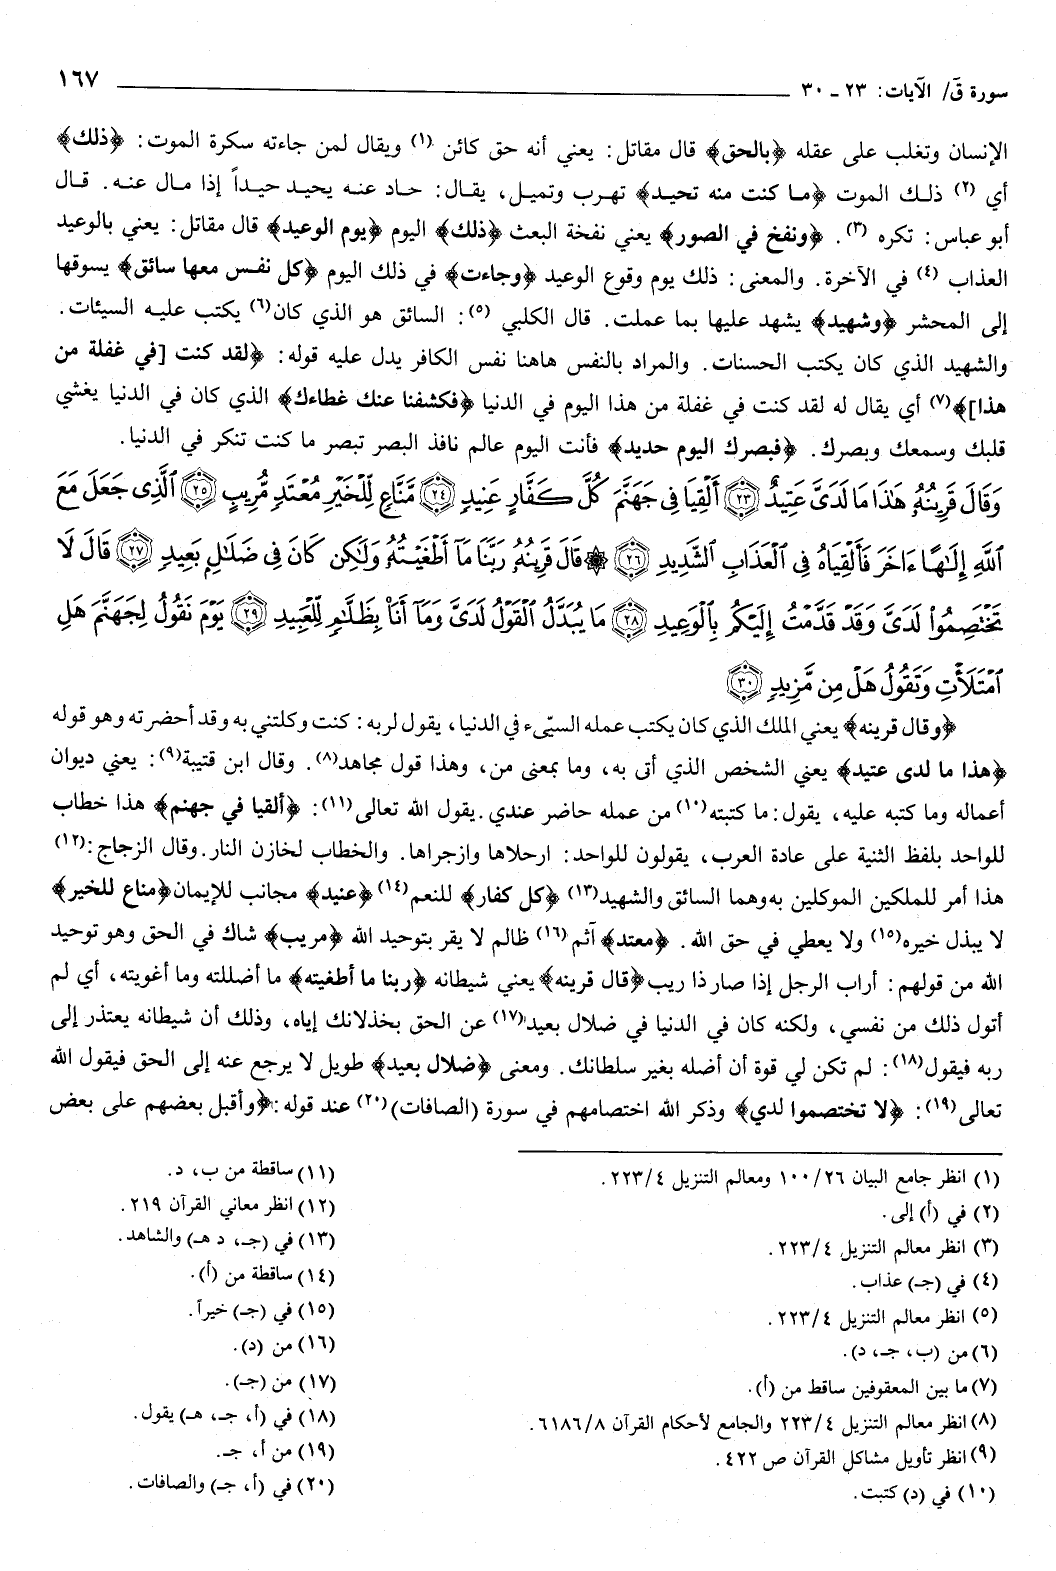 سورة قۤ/ الآيات: ٢٣ - ٣٠
١٦٧
الإنسان وتغلب على عقله ﴿بالحق﴾ قال مقاتل: يعني أنه حق كائن (١) ويقال لمن جاءته سكرة الموت: ﴿ذلك﴾
أي (٢) ذلك الموت ﴿ما كنت منه تحيد﴾ تهرب وتميل، يقال: حاد عنه يحيد حيداً إذا مال عنه. قال
أبو عباس: تكره (٣). ﴿ونفخ في الصور﴾ يعني نفخة البعث ﴿ذلك﴾ اليوم ﴿يوم الوعيد﴾ قال مقاتل: يعني بالوعيد
العذاب (٤) في الآخرة. والمعنى: ذلك يوم وقوع الوعيد ﴿وجاءت﴾ في ذلك اليوم ﴿كل نفس معها سائق﴾ يسوقها
إلى المحشر ﴿وشهيد﴾ يشهد عليها بما عملت. قال الكلبي (٥): السائق هو الذي كان(٦) يكتب عليه السيئات.
والشهيد الذي كان يكتب الحسنات. والمراد بالنفس هاهنا نفس الكافر يدل عليه قوله: ﴿لقد كنت [في غفلة من
هذا]﴾(٧) أي يقال له لقد كنت في غفلة من هذا اليوم في الدنيا ﴿فكشفنا عنك غطاءك﴾ الذي كان في الدنيا يغشي
قلبك وسمعك وبصرك. ﴿فبصرك اليوم حديد﴾ فأنت اليوم عالم نافذ البصر تبصر ما كنت تنكر في الدنيا.
وَقَالَ قَرِينُهُۥ هَٰذَا مَا لَدَىَّ عَتِيدٌ ﴿٢٣﴾ أَلْقِيَا فِى جَهَنَّمَ كُلَّ كَفَّارٍ عَنِيدٍ ﴿٢٤﴾ مَّنَّاعٍ لِّلْخَيْرِ مُعْتَدٍ مُّرِيبٍ ﴿٢٥﴾ ٱلَّذِى جَعَلَ مَعَ
ٱللَّهِ إِلَٰهًا ءَاخَرَ فَأَلْقِيَاهُ فِى ٱلْعَذَابِ ٱلشَّدِيدِ ﴿٢٦﴾ ۞ قَالَ قَرِينُهُۥ رَبَّنَا مَآ أَطْغَيْتُهُۥ وَلَٰكِن كَانَ فِى ضَلَٰلٍۭ بَعِيدٍ ﴿٢٧﴾ قَالَ لَا
تَخْتَصِمُوا۟ لَدَىَّ وَقَدْ قَدَّمْتُ إِلَيْكُم بِٱلْوَعِيدِ ﴿٢٨﴾ مَا يُبَدَّلُ ٱلْقَوْلُ لَدَىَّ وَمَآ أَنَا۠ بِظَلَّٰمٍ لِّلْعَبِيدِ ﴿٢٩﴾ يَوْمَ نَقُولُ لِجَهَنَّمَ هَلِ
ٱمْتَلَأْتِ وَتَقُولُ هَلْ مِن مَّزِيدٍ ﴿٣٠﴾
﴿وقال قرينه﴾ يعني الملك الذي كان يكتب عمله السيّىء في الدنيا، يقول لربه: كنت وكلتني به وقد أحضرته وهو قوله
﴿هذا ما لدى عتيد﴾ يعني الشخص الذي أتى به، وما بمعنى من، وهذا قول مجاهد(٨). وقال ابن قتيبة(٩): يعني ديوان
أعماله وما كتبه عليه، يقول: ما كتبته(١٠) من عمله حاضر عندي. يقول الله تعالى(١١): ﴿ألقيا في جهنم﴾ هذا خطاب
للواحد بلفظ الثنية على عادة العرب، يقولون للواحد: ارحلاها وازجراها. والخطاب لخازن النار. وقال الزجاج:(١٢)
هذا أمر للملكين الموكلين به وهما السائق والشهيد(١٣) ﴿كل كفار﴾ للنعم(١٤) ﴿عنيد﴾ مجانب للإيمان ﴿مناع للخير﴾
لا يبذل خيره(١٥) ولا يعطي في حق الله. ﴿معتد﴾ آثم(١٦) ظالم لا يقر بتوحيد الله ﴿مريب﴾ شاك في الحق وهو توحيد
الله من قولهم: أراب الرجل إذا صار ذا ريب ﴿قال قرينه﴾ يعني شيطانه ﴿ربنا ما أطغيته﴾ ما أضللته وما أغويته، أي لم
أتول ذلك من نفسي، ولكنه كان في الدنيا في ضلال بعيد(١٧) عن الحق بخذلانك إياه، وذلك أن شيطانه يعتذر إلى
ربه فيقول(١٨): لم تكن لي قوة أن أضله بغير سلطانك. ومعنى ﴿ضلال بعيد﴾ طويل لا يرجع عنه إلى الحق فيقول الله
تعالى(١٩): ﴿لا تختصموا لدي﴾ وذكر الله اختصامهم في سورة (الصافات)(٢٠) عند قوله: ﴿وأقبل بعضهم على بعض
(١) انظر جامع البيان ٢٦/ ١٠٠ ومعالم التنزيل ٤/ ٢٢٣.
(٢) في (أ) إلى.
(٣) انظر معالم التنزيل ٤/ ٢٢٣.
(٤) في (جـ) عذاب.
(٥) انظر معالم التنزيل ٤/ ٢٢٣.
(٦) من (ب، جـ، د).
(٧) ما بين المعقوفين ساقط من (أ).
(٨) انظر معالم التنزيل ٤/ ٢٢٣ والجامع لأحكام القرآن ٨/ ٦١٨٦.
(٩) انظر تأويل مشاكل القرآن ص ٤٢٢.
(١٠) في (د) كتبت.
(١١) ساقطة من ب، د.
(١٢) انظر معاني القرآن ٢١٩.
(١٣) في (جـ، د هـ) والشاهد.
(١٤) ساقطة من (أ).
(١٥) في (جـ) خيراً.
(١٦) من (د).
(١٧) من (جـ).
(١٨) في (أ، جـ، هـ) يقول.
(١٩) من أ، جـ.
(٢٠) في (أ، جـ) والصافات.